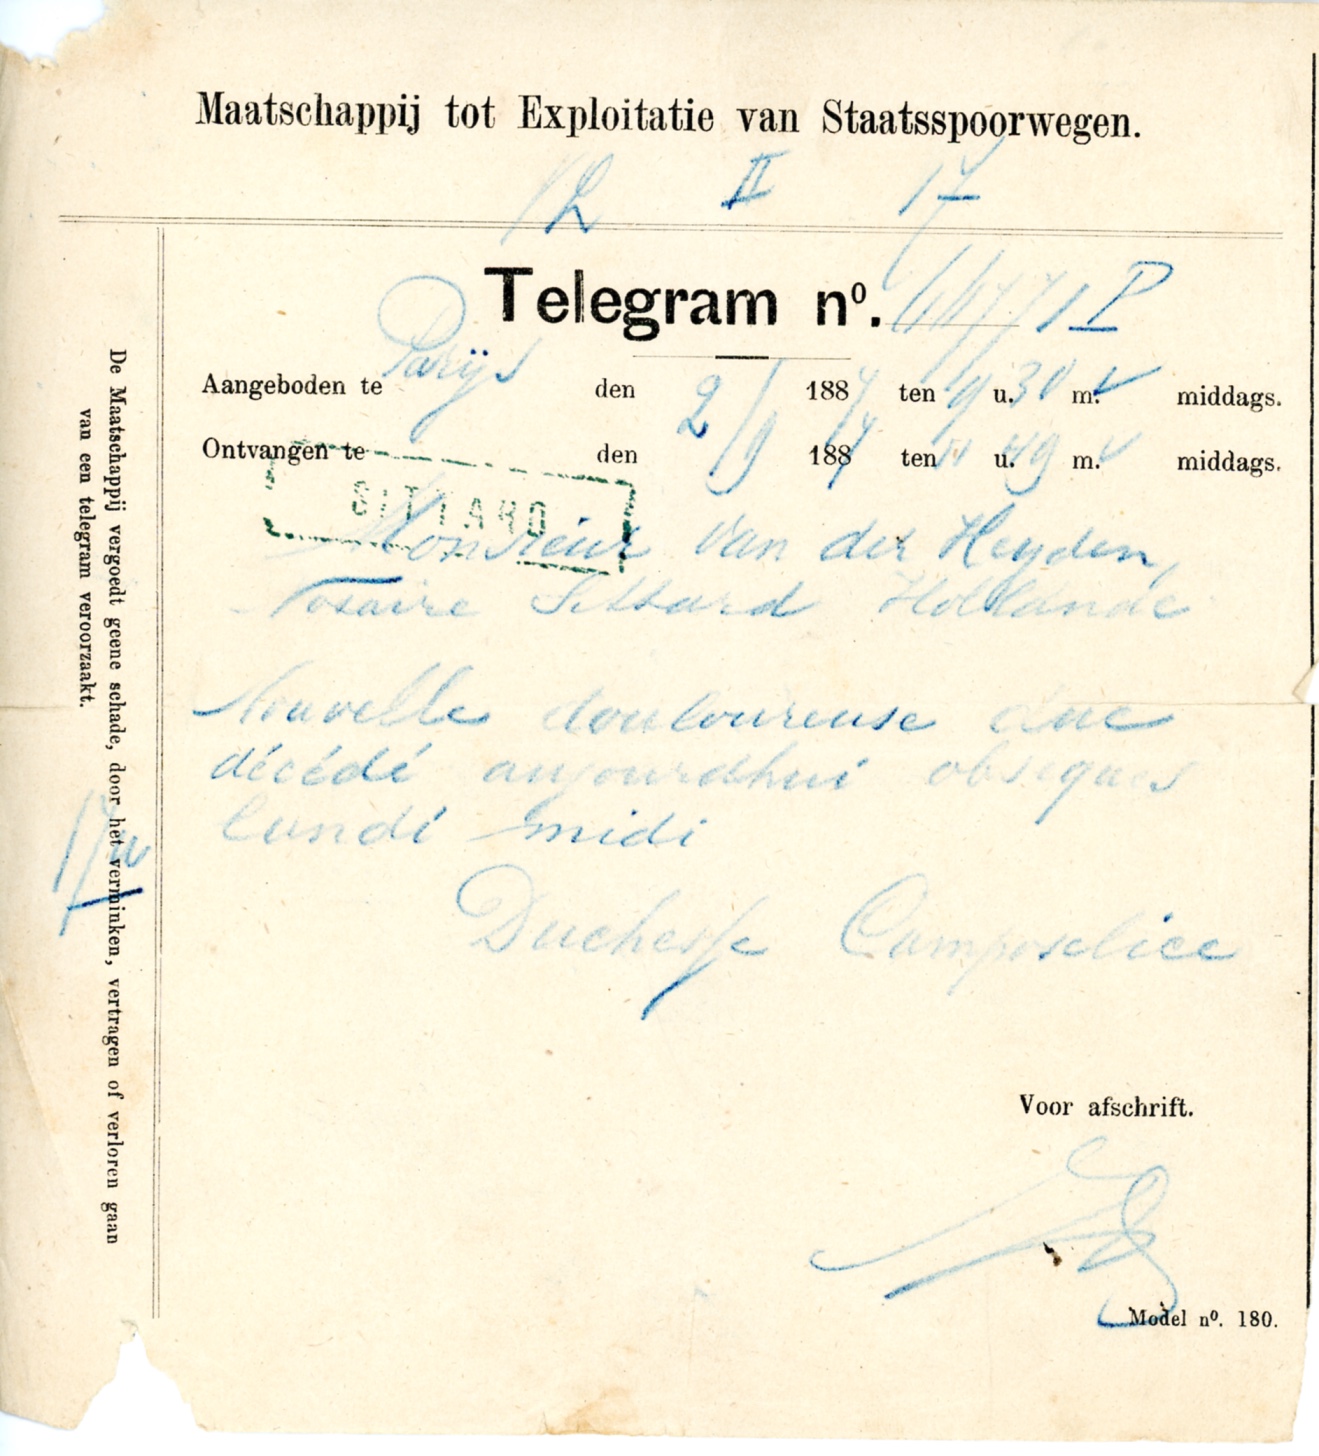 Maatschappij tot Exploitatie van Staatsspoorwegen.
12 II 17
Telegram nº.
Aangeboden te Parijs den 2/9 1887 ten 9 u. 30 m. v middags.
Ontvangen te den 2/9 1887 ten 11 u. 49 m. v middags.
SITTARD
Monsieur Van der Heyden,
Notaire Sittard Hollande
Nouvelle douloureuse duc
décédé aujourdhui obseques
lundi midi
Duchesse Camposelice
Voor afschrift.
Model nº. 180.
De Maatschappij vergoedt geene schade, door het verminken, vertragen of verloren gaan
van een telegram veroorzaakt.